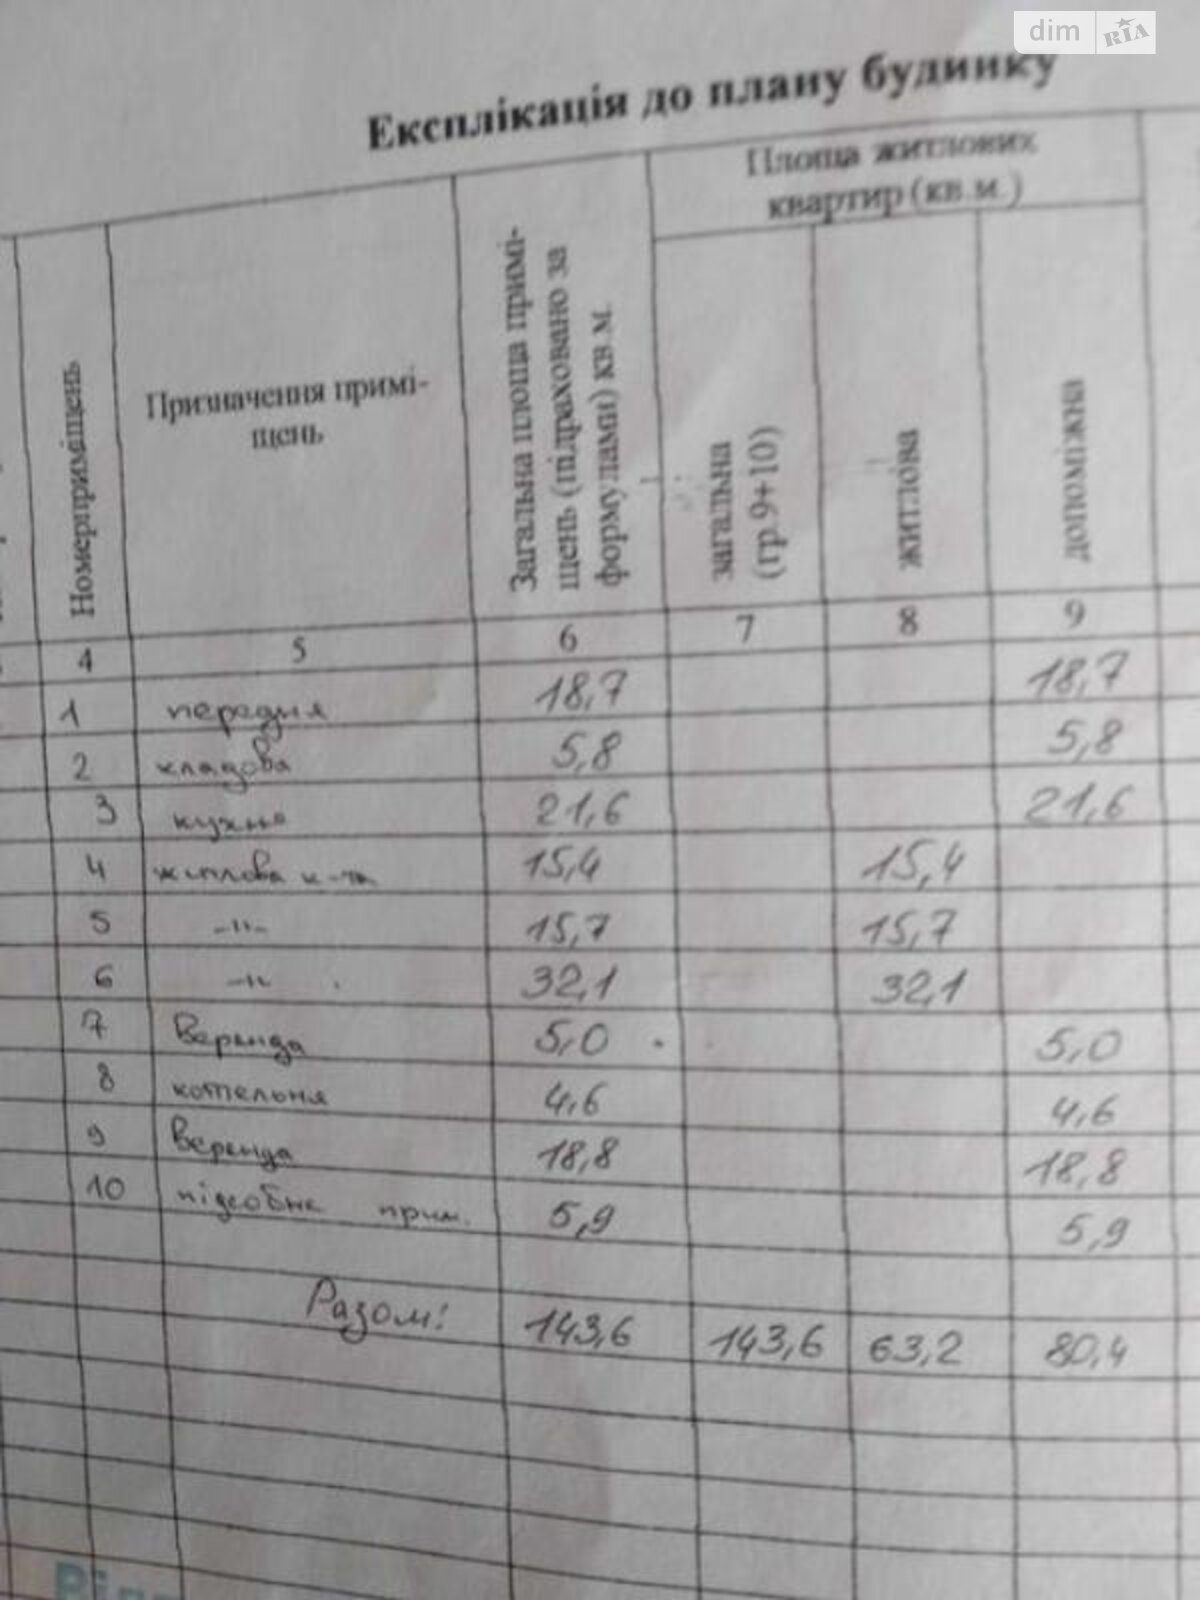 dim RIA
Експлікація до плану будинку
Номер приміщень
Призначення примі-
щень
Загальна площа примі-
щень (підраховано за
формулами) кв.м.
Площа житлових
квартир (кв.м.)
загальна
(гр.9+10)
житлова
допоміжна
4 5 6 7 8 9
1 передня 18,7 18,7
2 кладова 5,8 5,8
3 кухня 21,6 21,6
4 житлова к-та 15,4 15,4
5 -"- 15,7 15,7
6 -"- 32,1 32,1
7 Веранда 5,0 5,0
8 котельня 4,6 4,6
9 Веранда 18,8 18,8
10 підсобне прим. 5,9 5,9
Разом: 143,6 143,6 63,2 80,4